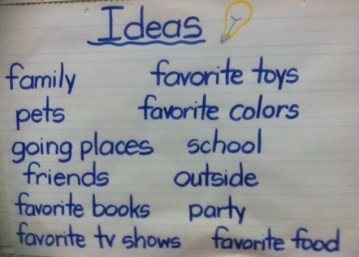 Ideas
family favorite toys
pets favorite colors
going places school
friends outside
favorite books party
favorite tv shows favorite food